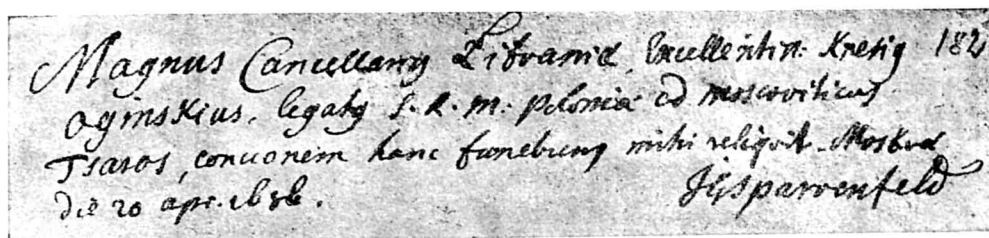 Magnus Cancellarius Litvaniæ, Excellentiss: Knesig 182
Oginskius, legatus S. R. M: Poloniæ ad moscoviticus
Tsaros, concionem hanc funebrem mihi reliqvit. Moskvæ
die 20 apr. 1686.
JGSparwenfeld